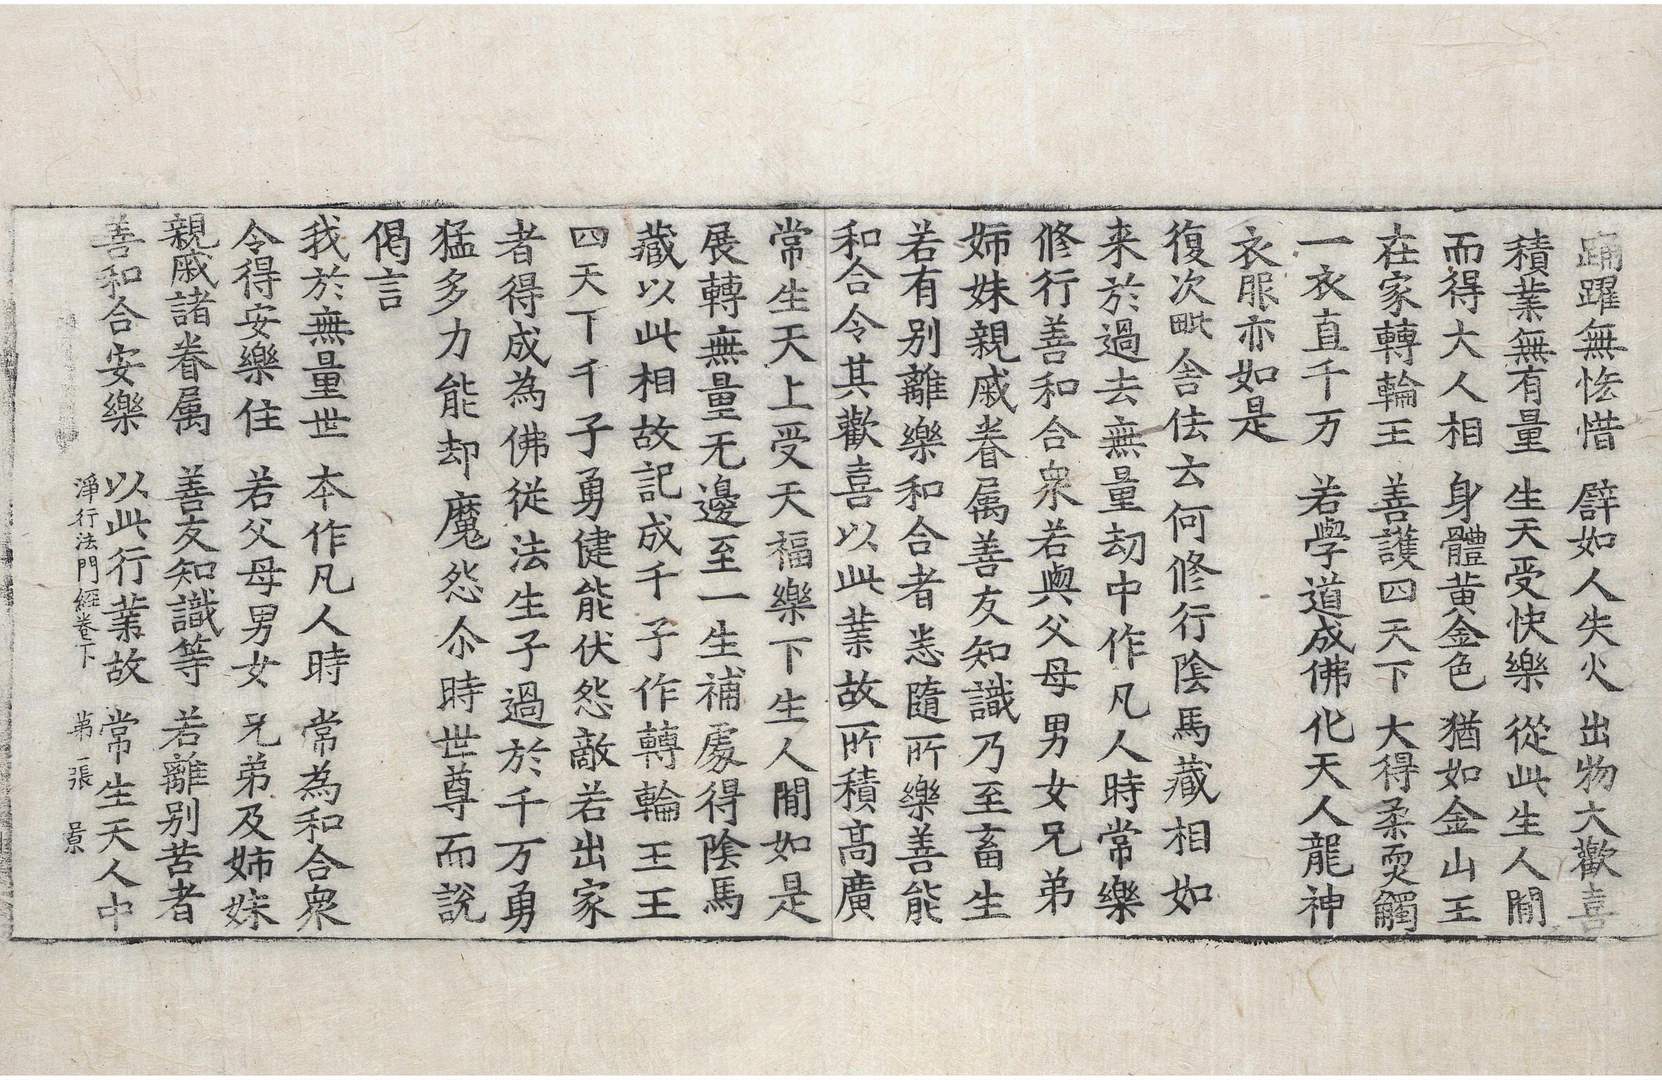 踊躍無悋惜 譬如人失火 出物大歡喜
積業無有量 生天受快樂 從此生人閒
而得大人相 身體黄金色 猶如金山王
在家轉輪王 善護四天下 大得柔耎觸
一衣直千万 若學道成佛 化天人龍神
衣服亦如是
復次毗舍佉云何修行陰馬藏相如
来於過去無量劫中作凡人時常樂
修行善和合衆若與父母男女兄弟
姉妹親戚眷属善友知識乃至畜生
若有别離樂和合者悉隨所樂善能
和合令其歡喜以此業故所積髙廣
常生天上受天福樂下生人閒如是
展轉無量无邊至一生補處得陰馬
藏以此相故記成千子作轉輪王王
四天下千子勇健能伏怨敵若出家
者得成為佛從法生子過於千万勇
猛多力能却魔怨尒時世尊而說
偈言
我於無量世 本作凡人時 常為和合衆
令得安樂住 若父母男女 兄弟及姉妹
親戚諸眷属 善友知識等 若離别苦者
善和合安樂 以此行業故 常生天人中
淨行法門經卷下 第一張 景